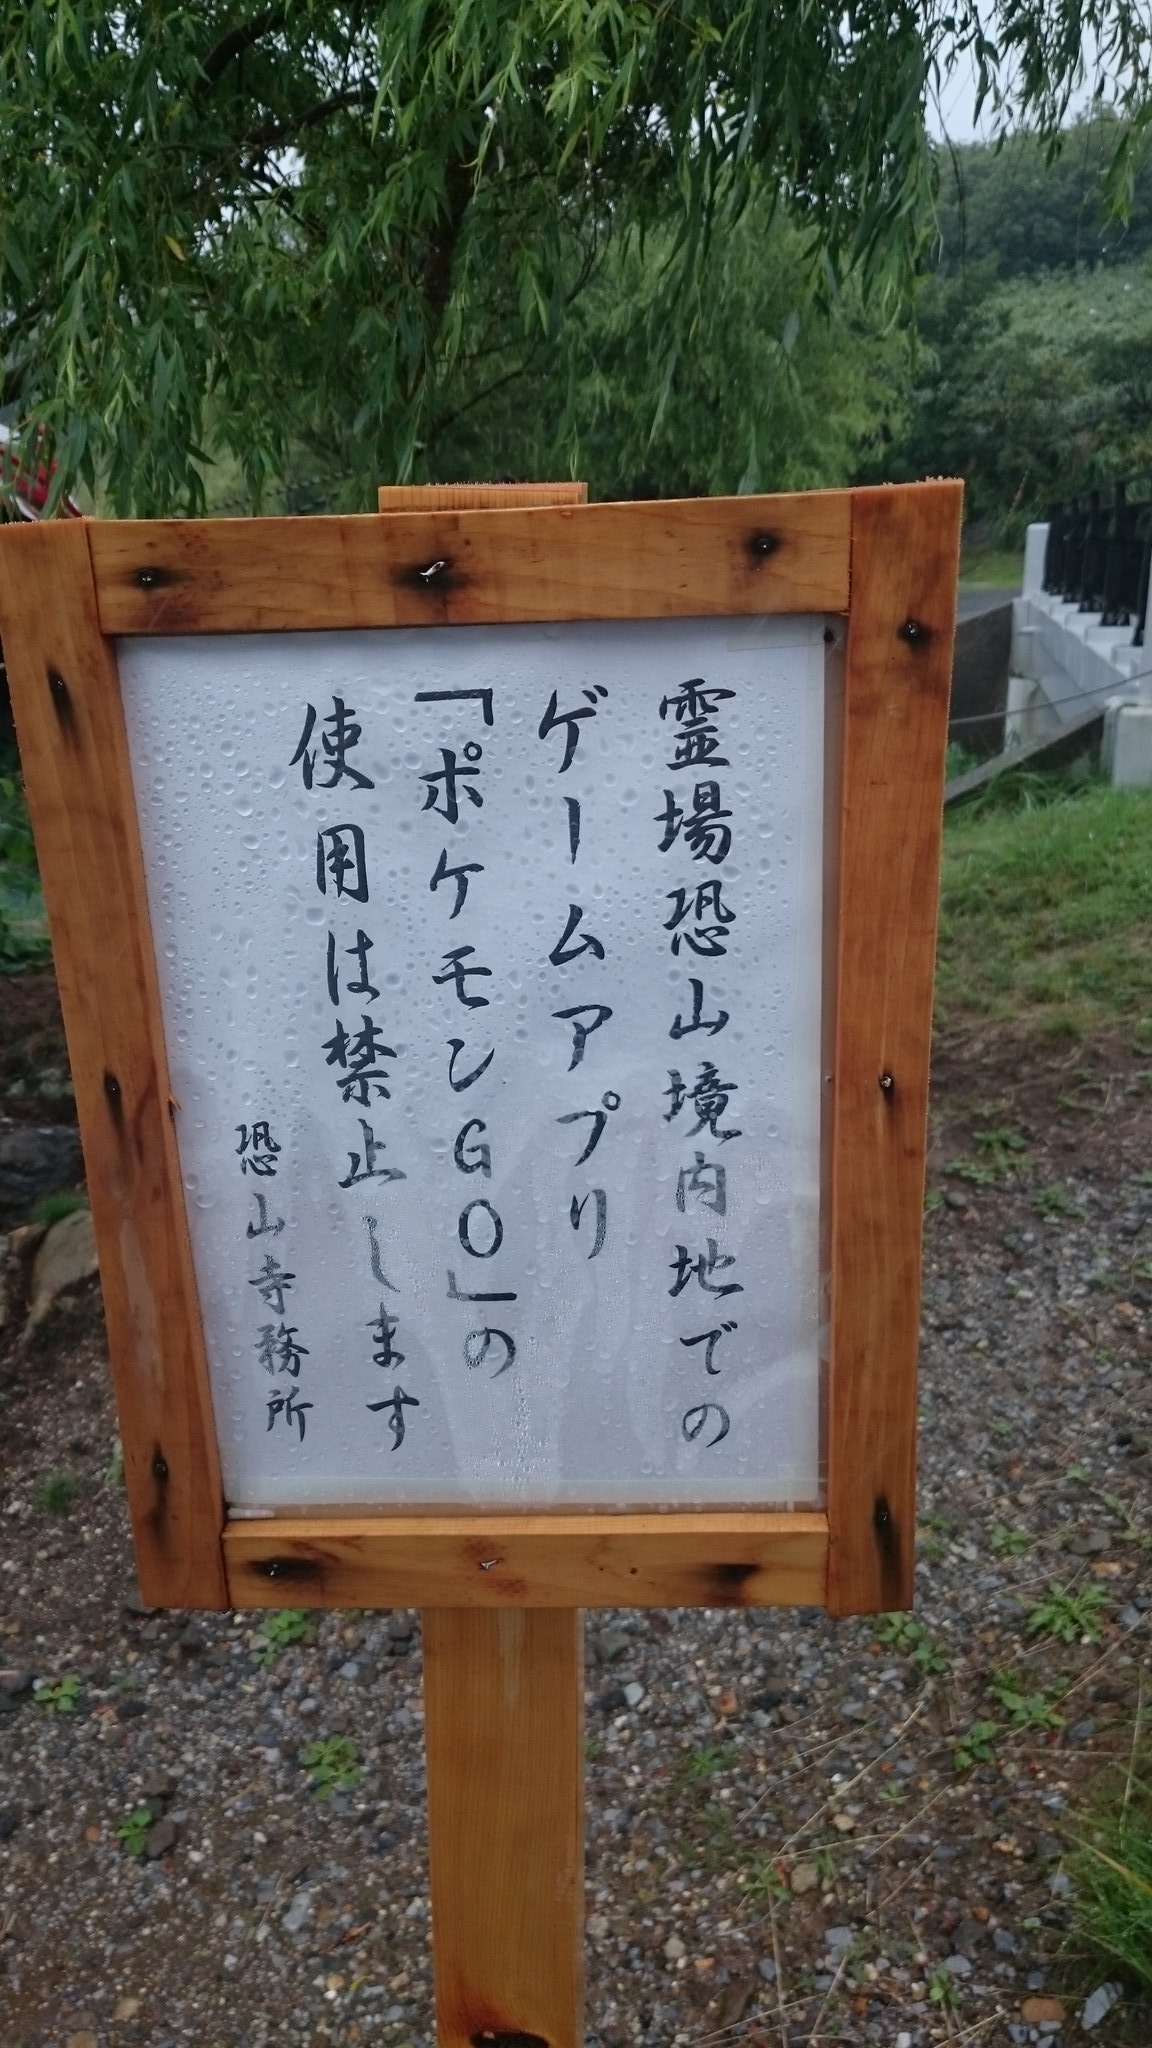 霊場恐山境内地での
ゲームアプリ
「ポケモンGO」の
使用は禁止します
恐山寺務所